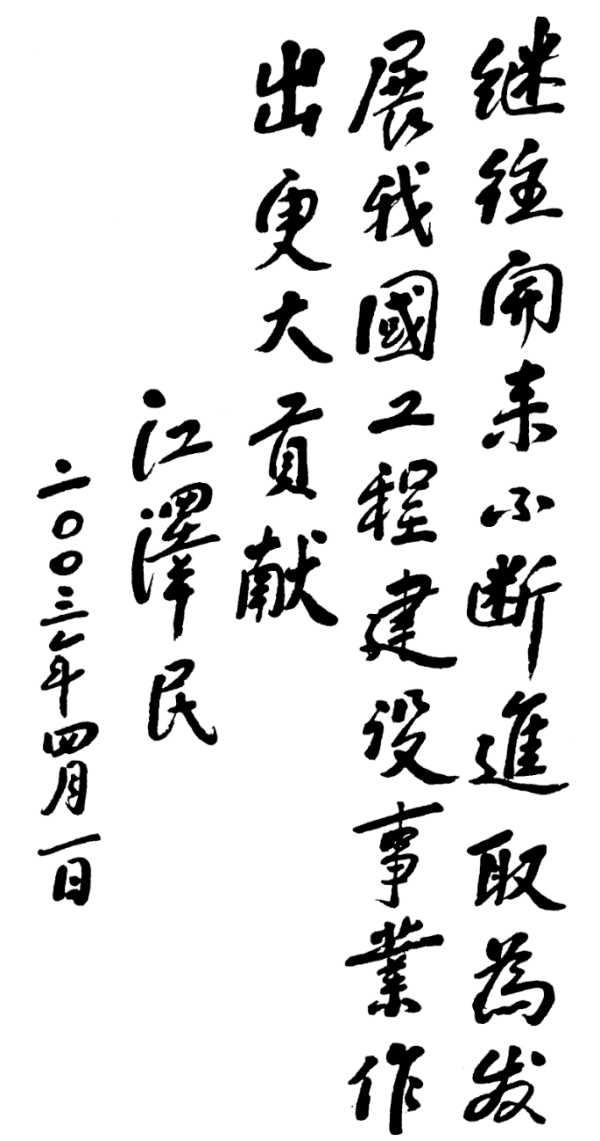 继往开来不断進取為发
展我國工程建设事業作
出更大貢献
江澤民
二〇〇三年四月一日